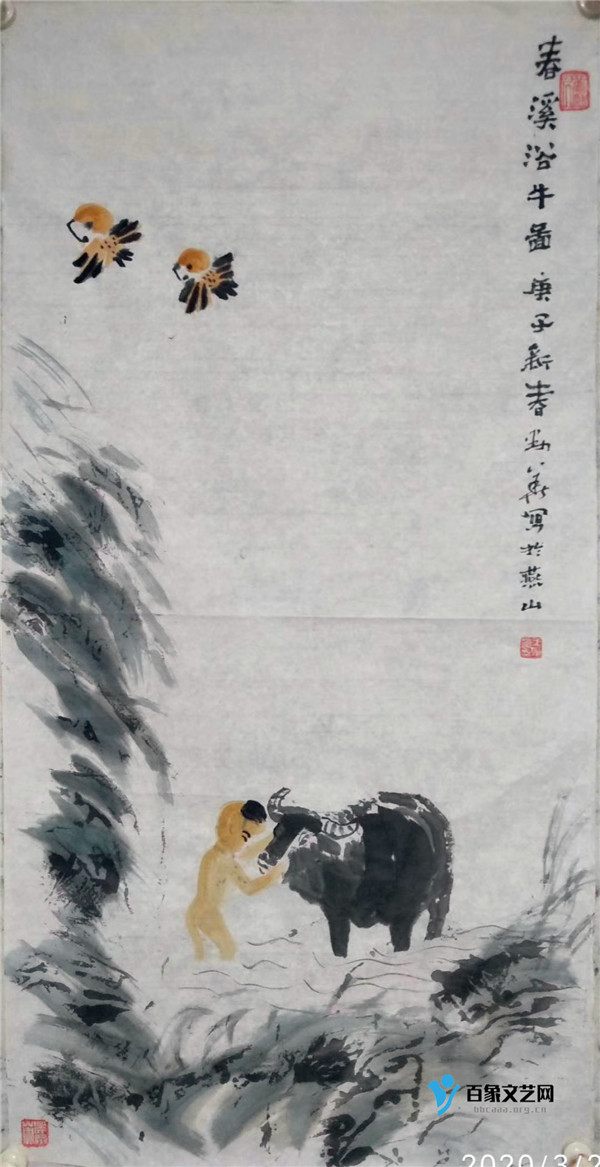 春溪浴牛啚庚子新春劲寫於燕山
百象文艺网
bhcaaa.org.cn
2020/3/2